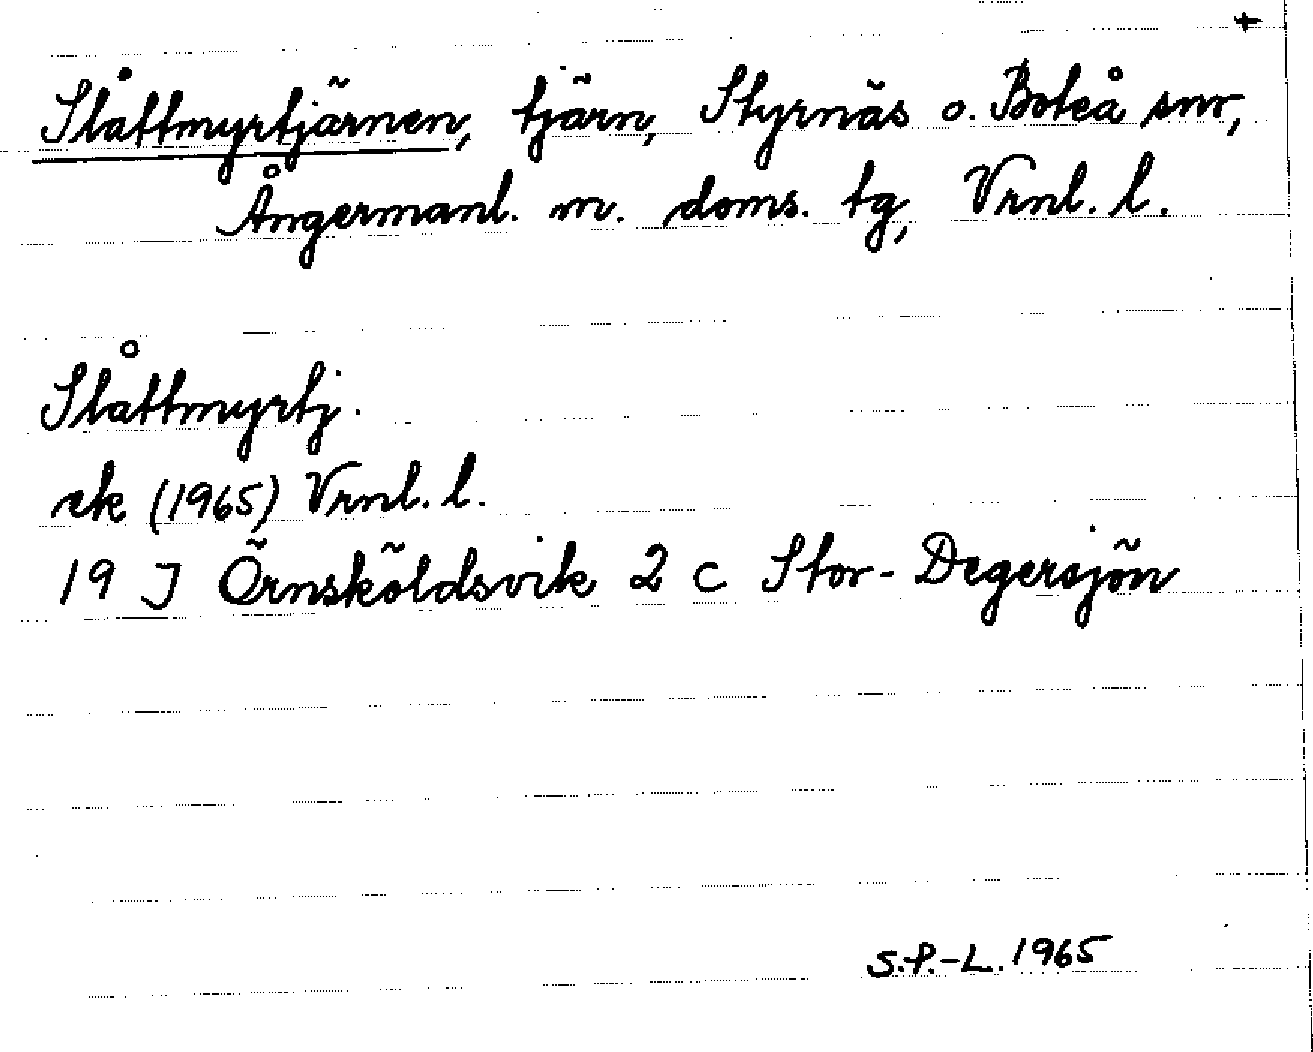 +
Slåttmyrtjärnen, tjärn, Styrnäs o. Boteå snr,
Ångermanl. m. doms. tg, Vrnl. l.
Slåttmyrtj.
ek (1965) Vrnl. l.
19 J Örnsköldsvik 2 c Stor-Degersjön
S.P.-L. 1965